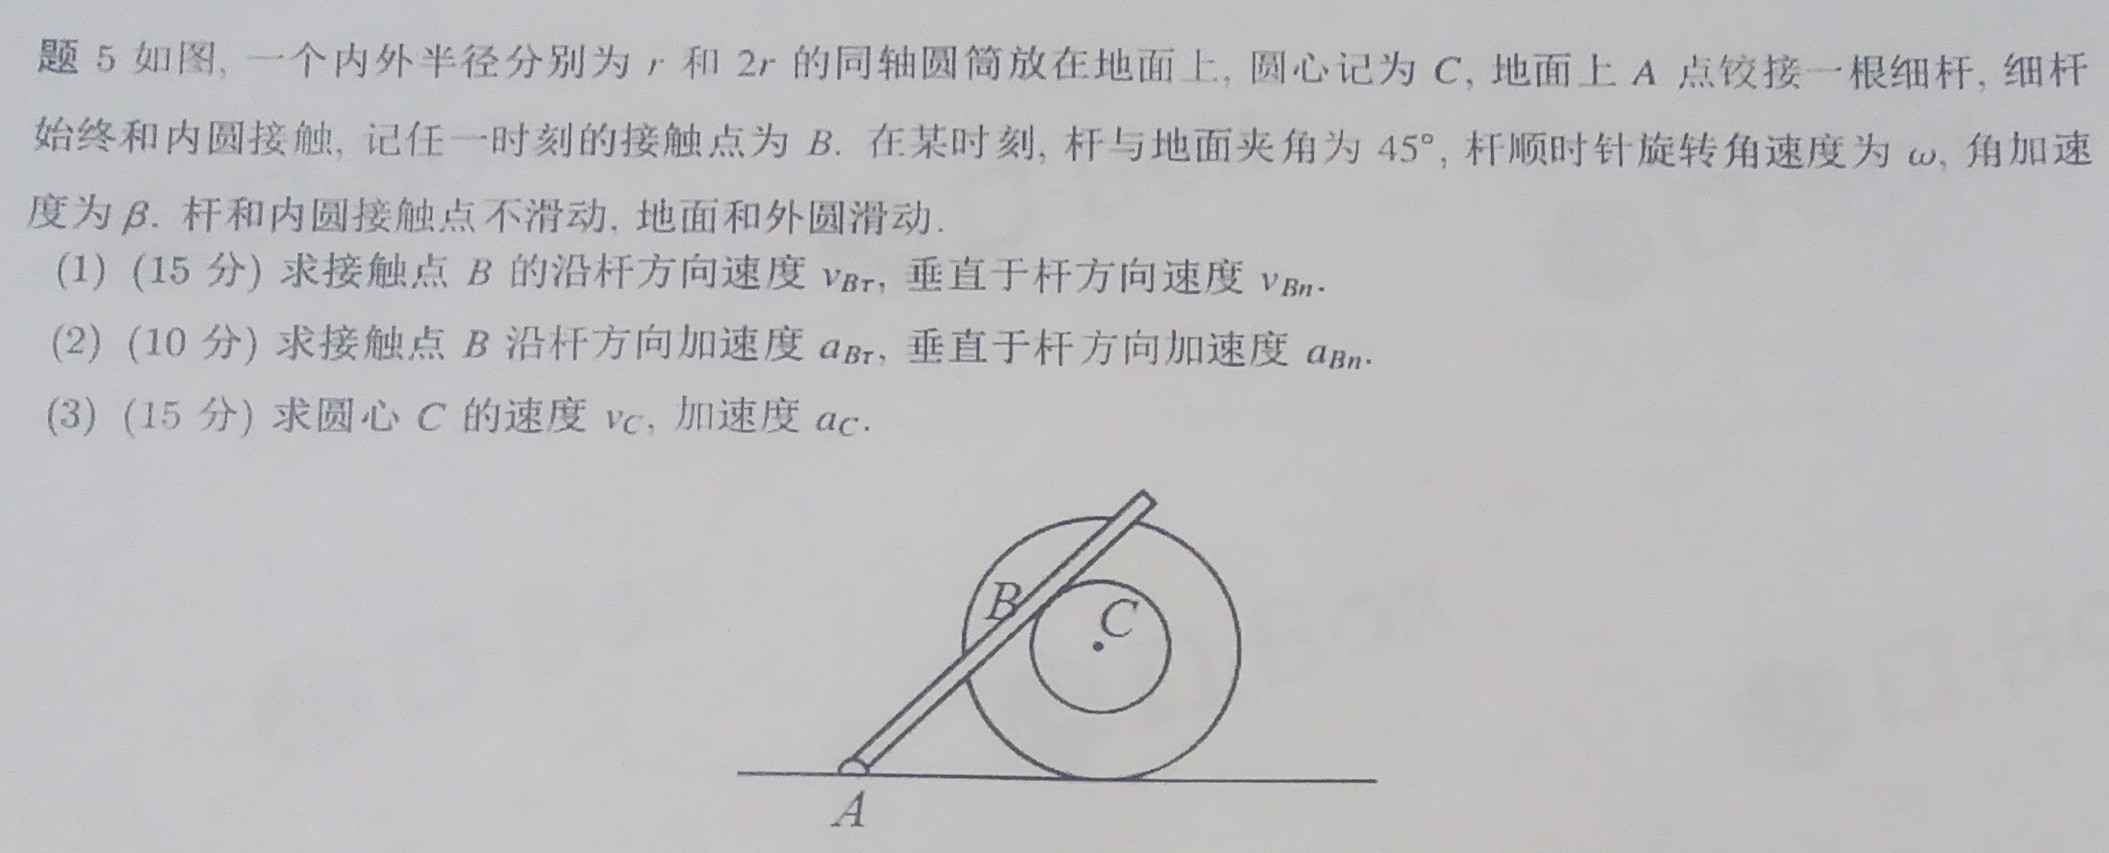 题 5 如图, 一个内外半径分别为 r 和 2r 的同轴圆筒放在地面上, 圆心记为 C, 地面上 A 点铰接一根细杆, 细杆
始终和内圆接触, 记任一时刻的接触点为 B. 在某时刻, 杆与地面夹角为 45°, 杆顺时针旋转角速度为 ω, 角加速
度为 β. 杆和内圆接触点不滑动, 地面和外圆滑动.
(1) (15 分) 求接触点 B 的沿杆方向速度 v_{Bτ}, 垂直于杆方向速度 v_{Bn}.
(2) (10 分) 求接触点 B 沿杆方向加速度 a_{Bτ}, 垂直于杆方向加速度 a_{Bn}.
(3) (15 分) 求圆心 C 的速度 v_C, 加速度 a_C.
B
C
A